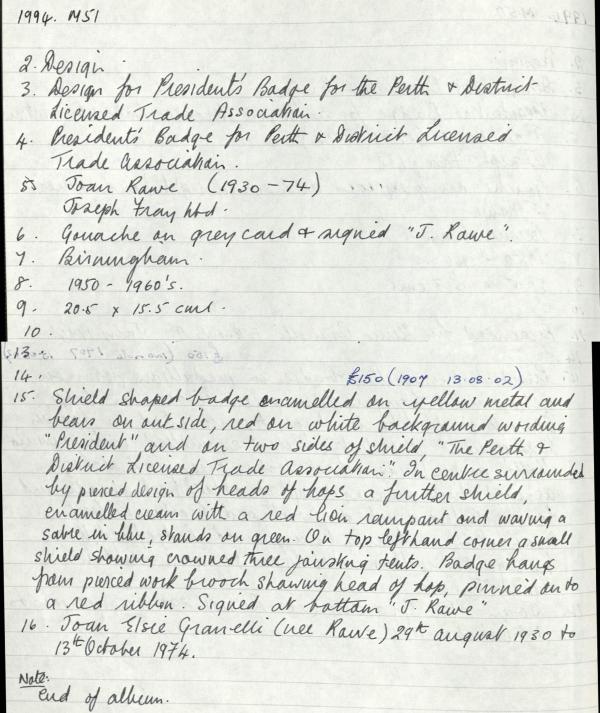 1994. M51
2. Design
3. Design for President's Badge for the Perth & District
Licensed Trade Association.
4. President's Badge for Perth & District Licensed
Trade Association.
5 Joan Rawe (1930-74)
Joseph Fray Ltd.
6. Gouache on grey card & signed "J. Rawe".
7. Birmingham.
8. 1950 - 1960's.
9. 20.5 x 15.5 cms.
10.
13.
14. £150 (1907 13.08.02)
15. Shield shaped badge enamelled on yellow metal and
bears on outside, red on white background wording
"President" and on two sides of shield, "The Perth &
District Licensed Trade Association". In centre surrounded
by pierced design of heads of hops a further shield,
enamelled cream with a red lion rampant and waving a
sabre in blue, stands on green. On top lefthand corner a small
shield showing crowned three jousting tents. Badge hangs
from pierced work brooch showing head of hop, pinned onto
a red ribbon. Signed at bottom "J. Rawe"
16. Joan Elsie Granelli (nee Rawe) 29th august 1930 to
13th October 1974.
Note:
End of album.